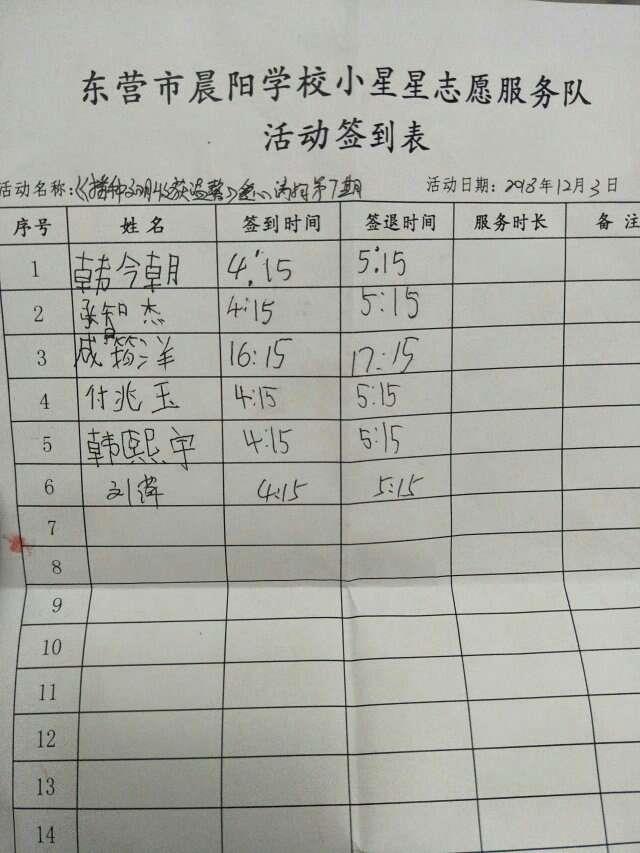 东营市晨阳学校小星星志愿服务队
活动签到表
活动名称:《播种文明 收获温馨》爱心 第7期 活动日期: 2018年12月3日
序号 姓名 签到时间 签退时间 服务时长 备注
1 韩今朝 4:15 5:15
2 张智杰 4:15 5:15
3 成筠洋 16:15 17:15
4 付兆玉 4:15 5:15
5 韩熙宇 4:15 5:15
6 刘 4:15 5:15
7
8
9
10
11
12
13
14